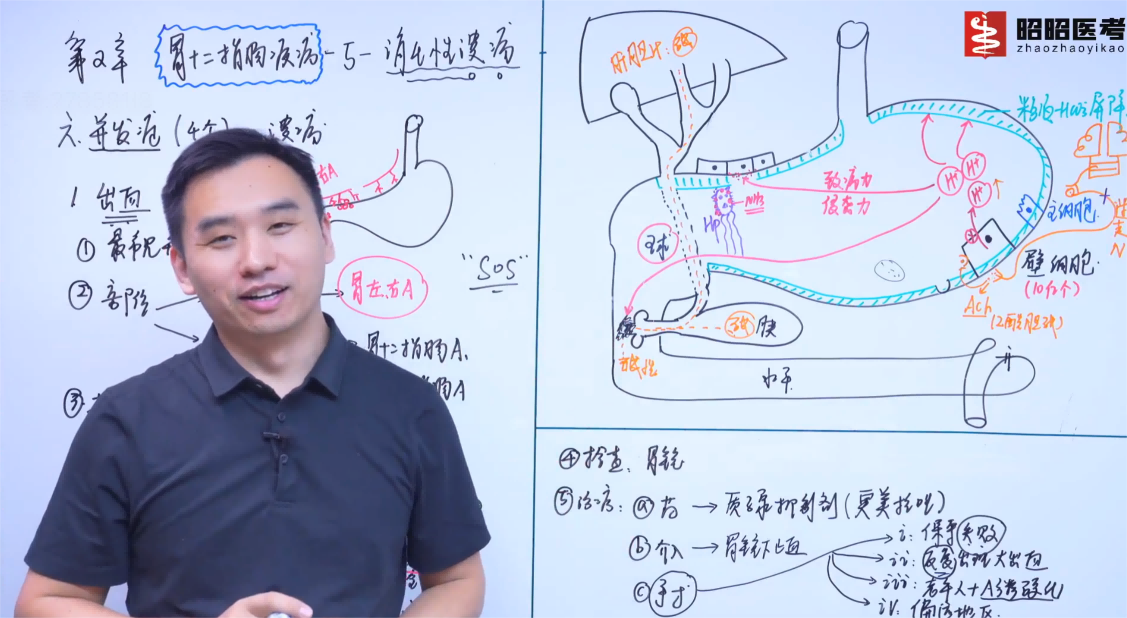 第2章 胃十二指肠疾病-5-消化性溃疡
六.并发症(4个) 溃疡
1 出血
① 最常见
② 部位
胃左.右A
胃十二指肠A.
③
右A
"SOS"
昭昭医考
zhaozhaoyikao
肝胆汁:
黏液-HCO3屏障
H+
H+
H+
致病力
侵袭力
NH3
Hp
球
主细胞
迷走N
壁细胞.
(10亿个)
Ach
胰
水平
升
④检查:胃镜
⑤治疗: ⓐ药→质子泵抑制剂(奥美拉唑)
ⓑ介入→胃镜下止血
ⓒ手术
i: 保守失败
ii: 反复出现大出血
iii: 老年人+A粥样硬化
iv: 偏远地区.